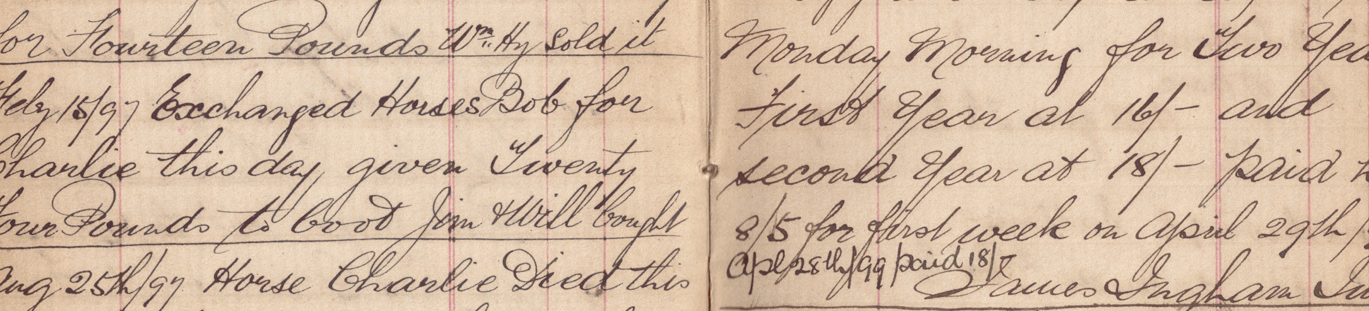 for Fourteen Pounds Wm Hy Sold it
Feby 15/97 Exchanged Horses Bob for
Charlie this day, given Twenty
Four Pounds to boot Jim & Will bought
Aug 25th/97 Horse Charlie Died this
Monday Morning for Two
First Year at 16/- and
second Year at 18/- paid
8/5 for first week on April 29th
Apl 28th/99 paid 18/-
James Ingham